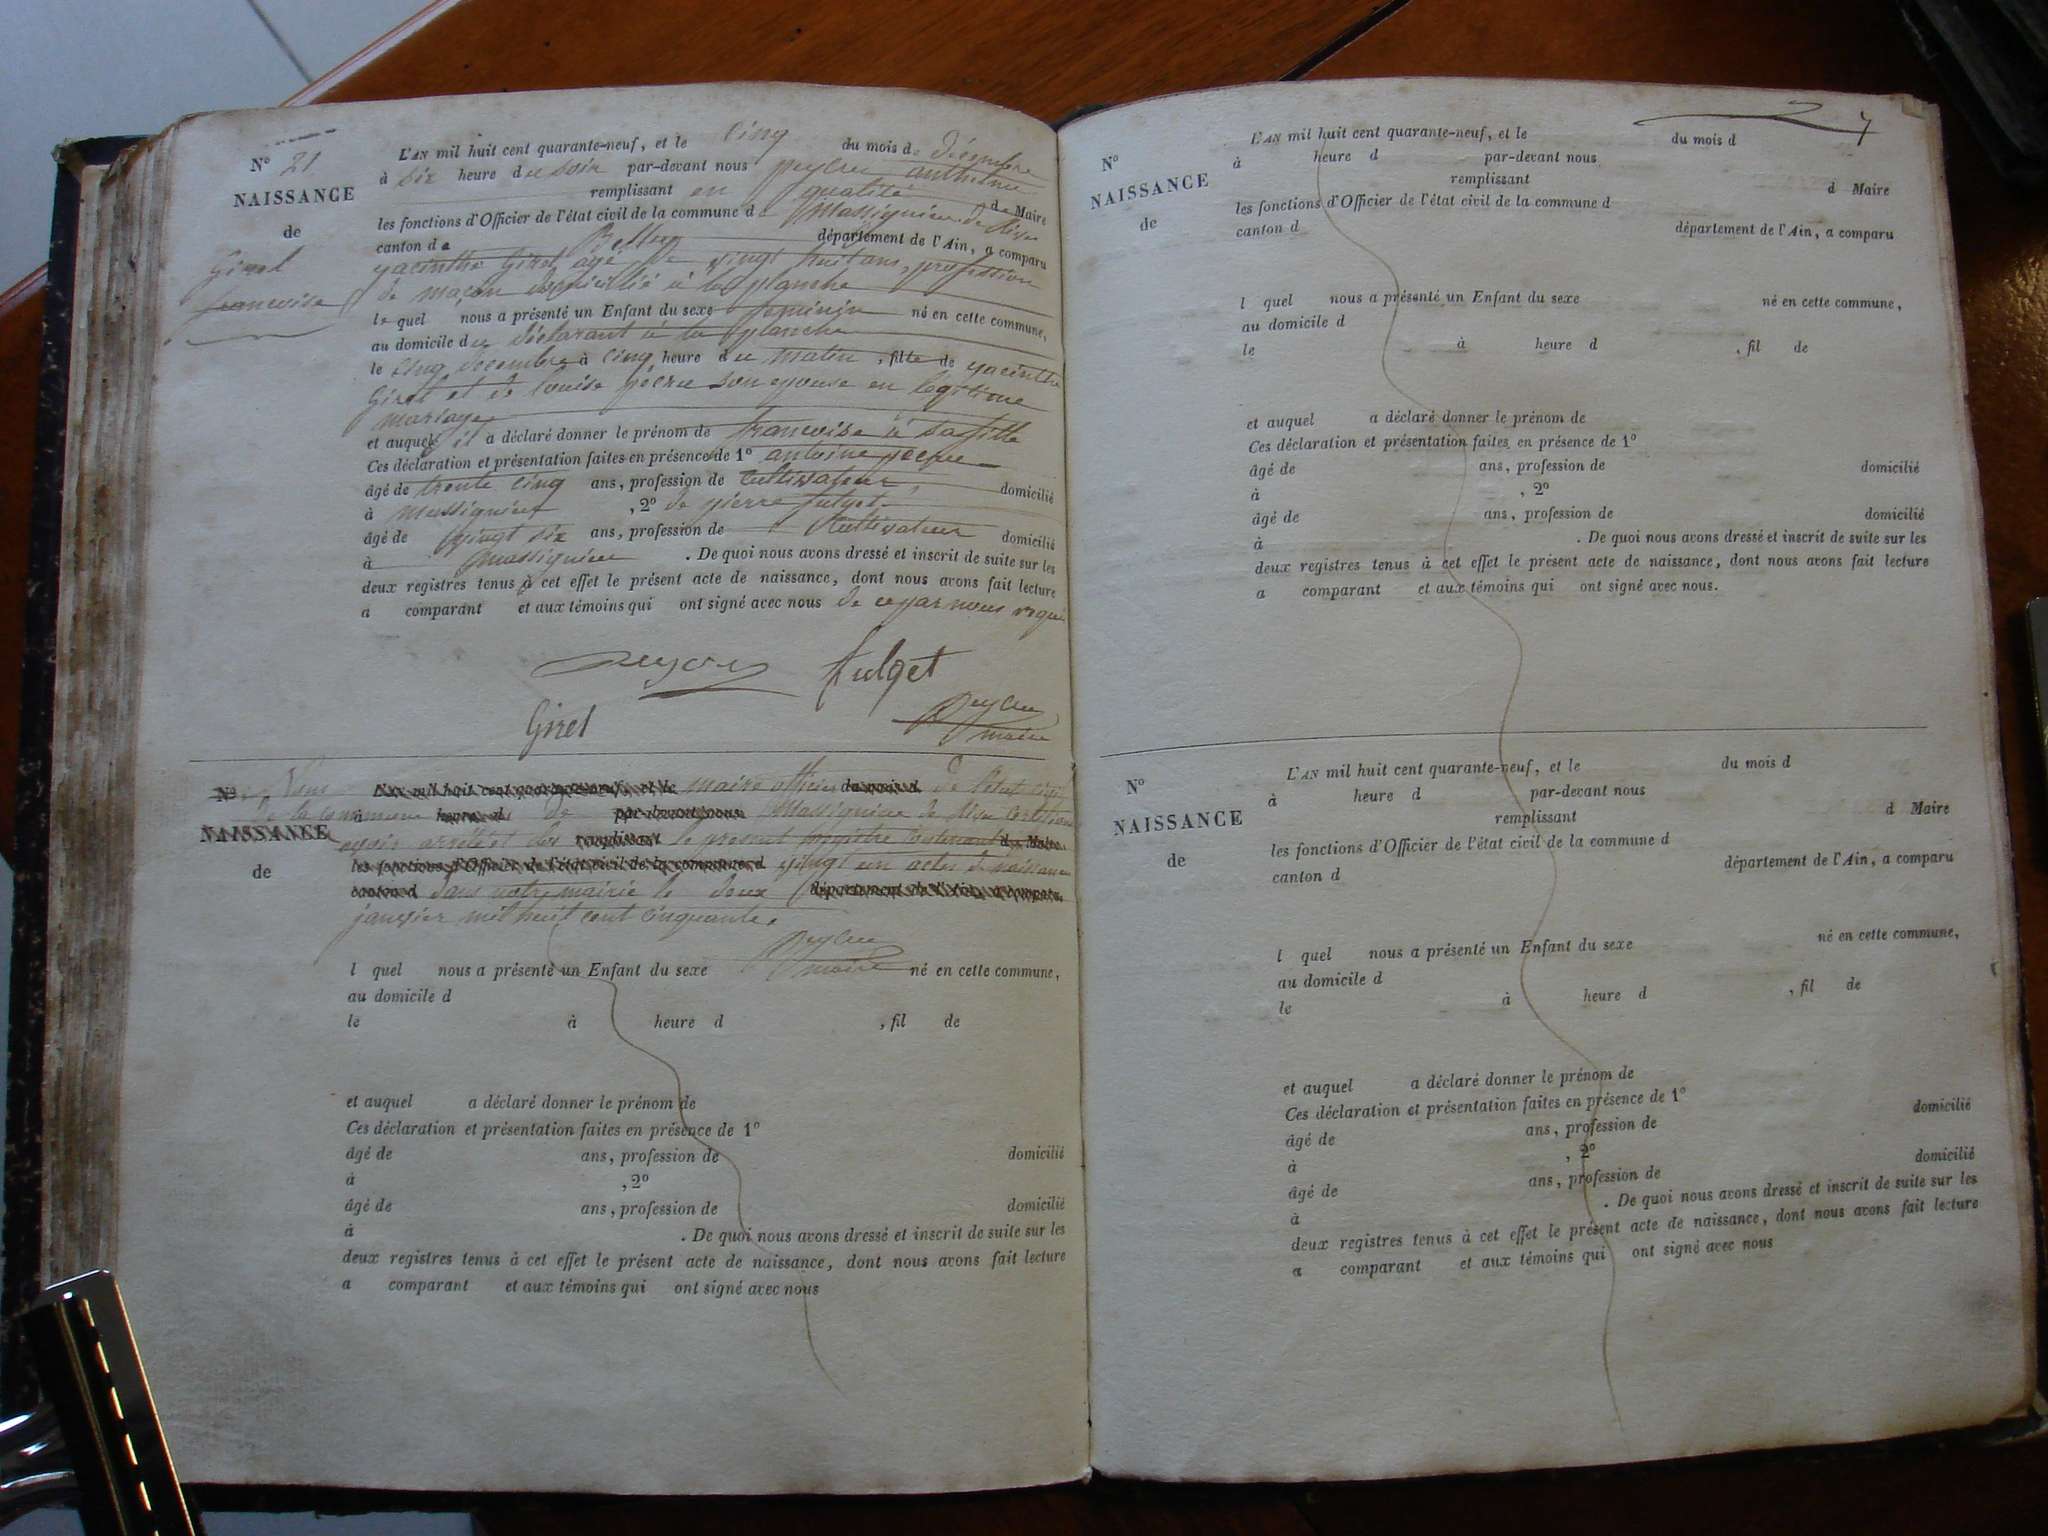 N° 21
NAISSANCE
de
Girel
francoise
L'AN mil huit cent quarante-neuf, et le cinq du mois de décembre
à six heure du soir par-devant nous peysson anthelme
remplissant en qualité de Maire
les fonctions d'Officier de l'état civil de la commune de Massignieu de Rives
canton de Belley département de l'Ain, a comparu
yacinthe Girel agé de vingt huit ans, profession
de maçon domicilié à la planche
le quel nous a présenté un Enfant du sexe feminin né en cette commune,
au domicile du déclarant à la planche
le cinq decembre à cinq heure du matin, fille de yacinthe
Girel et de louise son epouse en légitime
mariage
et auquel il a déclaré donner le prénom de francoise à sa fille
Ces déclaration et présentation faites en présence de 1° antoine
âgé de trente cinq ans, profession de cultivateur, domicilié
à massignieu, 2° de pierre fulget
âgé de vingt six ans, profession de cultivateur domicilié
à massignieu. De quoi nous avons dressé et inscrit de suite sur les
deux registres tenus à cet effet le présent acte de naissance, dont nous avons fait lecture
a comparant et aux témoins qui ont signé avec nous de ce par nous requis
fulget
Girel
maire
N° Nous L'AN mil huit cent quarante-neuf, et le maire officier du mois d de l'état civil
de la commune à heure d de par-devant nous Massignieu de Rives certifions
NAISSANCE avoir arrêté et clos remplissant le present registre contenant d Maire
de
les fonctions d'Officier de l'état civil de la commune d vingt un actes de naissances
canton d dans notre mairie le deux département de l'Ain, a comparu
janvier mil huit cent cinquante.
maire
l quel nous a présenté un Enfant du sexe né en cette commune,
au domicile d
le à heure d , fil de
et auquel a déclaré donner le prénom de
Ces déclaration et présentation faites en présence de 1°
âgé de ans, profession de domicilié
à , 2°
âgé de ans, profession de domicilié
à . De quoi nous avons dressé et inscrit de suite sur les
deux registres tenus à cet effet le présent acte de naissance, dont nous avons fait lecture
a comparant et aux témoins qui ont signé avec nous
7
N°
NAISSANCE
de
L'AN mil huit cent quarante-neuf, et le du mois d
à heure d par-devant nous
remplissant d Maire
les fonctions d'Officier de l'état civil de la commune d
canton d département de l'Ain, a comparu
l quel nous a présenté un Enfant du sexe né en cette commune,
au domicile d
le à heure d , fil de
et auquel a déclaré donner le prénom de
Ces déclaration et présentation faites en présence de 1°
âgé de ans, profession de domicilié
à , 2°
âgé de ans, profession de domicilié
à . De quoi nous avons dressé et inscrit de suite sur les
deux registres tenus à cet effet le présent acte de naissance, dont nous avons fait lecture
a comparant et aux témoins qui ont signé avec nous.
N°
NAISSANCE
de
L'AN mil huit cent quarante-neuf, et le du mois d
à heure d par-devant nous
remplissant d Maire
les fonctions d'Officier de l'état civil de la commune d
canton d département de l'Ain, a comparu
l quel nous a présenté un Enfant du sexe né en cette commune,
au domicile d
le à heure d , fil de
et auquel a déclaré donner le prénom de
Ces déclaration et présentation faites en présence de 1°
âgé de ans, profession de domicilié
à , 2°
âgé de ans, profession de domicilié
à . De quoi nous avons dressé et inscrit de suite sur les
deux registres tenus à cet effet le présent acte de naissance, dont nous avons fait lecture
a comparant et aux témoins qui ont signé avec nous